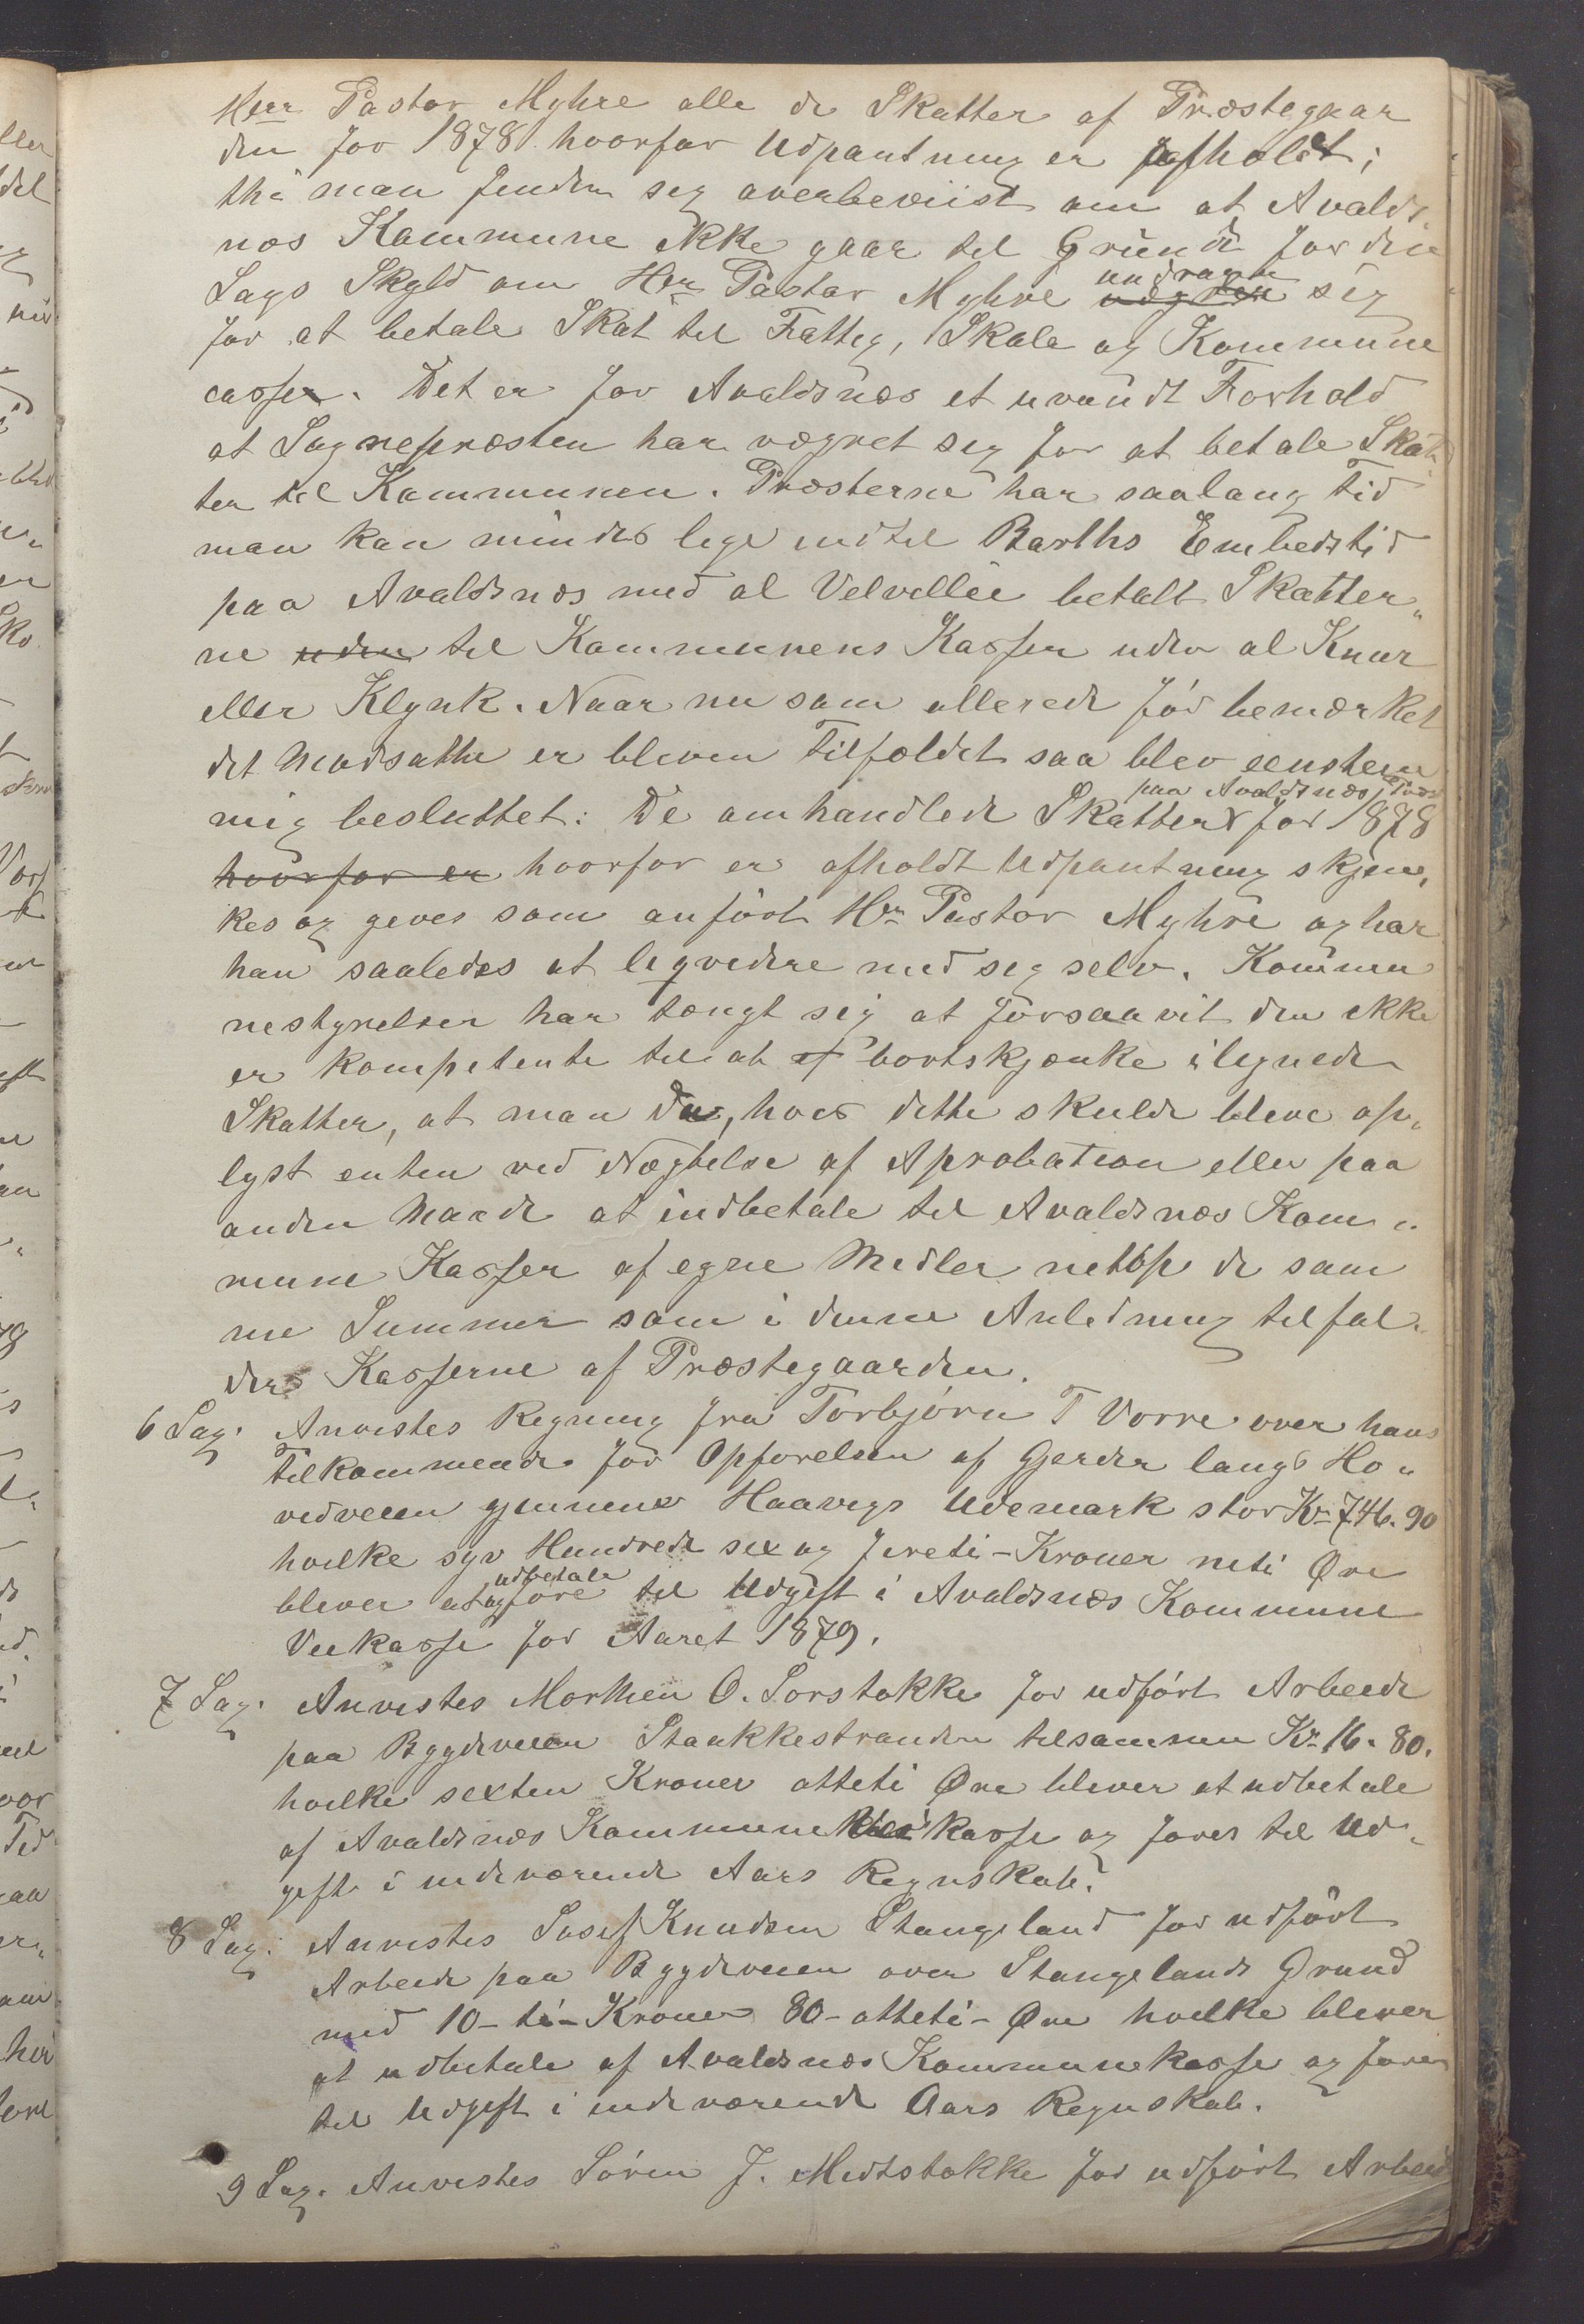 Herr Pastor Myhre alle de Skatter af Præstegaar
den for 1878 hvorfor Udpantning er afholdt;
thi man finder sig overbeviist om at Avalds
næs Kommune ikke gaar til Grunde for den
Sags Skyld om Hr Pastor Myhre undragen sig
for at betale Skat til Fattig, Skole og Kommune
casser. Det er for Avaldsnæs et uvandt Forhold
at Sognepræsten har vægret sig for at betale Skat
ter til Kommunen. Præsterne har saalang Tid
man kan mindes lige indtil Barths Embedstid
paa Avaldsnæs med al Velvillie betalt Skatter„
ne uden til Kommunens Kasser uden al Knur
eller Klynk. Naar nu som allerede før bemærket
det Modsatte er bleven Tilfældet saa blev eenstem
paa Avaldsnæs
mig besluttet: De omhandlede Skatter for 1878
hvorfor er hvorfor er afholdt Udpantning skjen„
kes og gives som anført Hr Pastor Myhre og har
han saaledes at liqvidere med sig selv. Kommu
nestyrelsen har tængt sig at forsaavit den ikke
er kompetente til at af bortskjænke ilignede
Skatter, at man da, hvis dette skulde blive op„
lyst enten ved Nægtelse af Aprobation eller paa
anden Maade at indbetale til Avaldsnæs Kom„
mune Kasser af egne Midler netop de sam
me Summer som i denne Anledning tilfal„
der Kasserne af Præstegaarden.
6 Sag. Anvistes Regning fra Torbjørn T Vorre over hans
Tilkommende for Opførelsen af Gjerder langs Ho„
vedveien gjennem Haavigs Udemark stor Kr 746.90
hvilke syv Hundrede sex og fireti-Kroner niti Øre
udbetale
bliver at og føre til Udgift i Avaldsnæs Kommune
Veikasse for Aaret 1879.
7 Sag. Anvistes Morthen O. Sørstokke for udført Arbeide
paa Bygdeveien Staakkestranden tilsammen Kr. 16.80.
hvilke sexten Kroner otteti Øre bliver at udbetale
af Avaldsnæs Kommune Veikasse og føres til Ud„
gift i indeværende Aars Regnskab.
8 Sag. Anvistes Josef Knudsen Stangeland for udført
Arbeide paa Bygdeveien over Stangelands Grund
med 10-ti-Kroner 80-otteti-Øre hvilke bliver
at udbetale af Avaldsnæs Kommunekasse og føres
til Udgift i indeværende Aars Regnskab.
9 Sag. Anvistes Søren J. Midtstokke for udført Arbeid